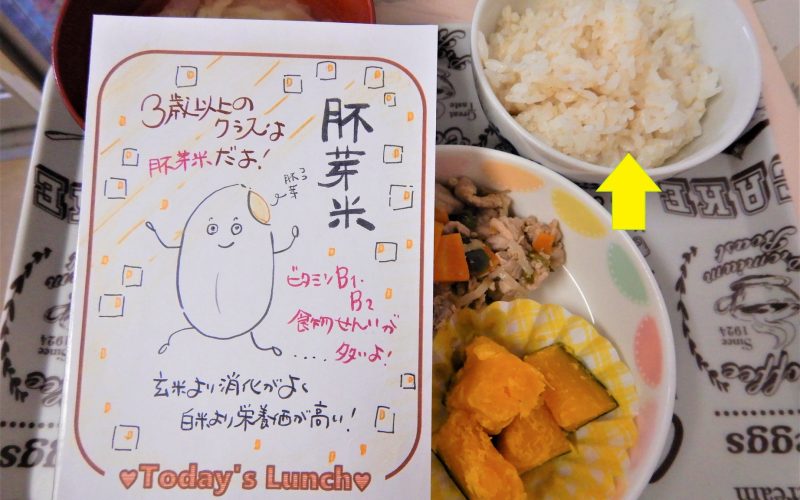 3歳以上の
クラスは
胚芽米だよ!
胚芽米
胚芽
ビタミンB1・
B2
食物せんいが
....多いよ!
玄米より消化がよく
白米より栄養価が高い!
♥Today's Lunch♥
Great
Taste
Premium
Roast
Since
1924
Coffee
eggs
CAKE